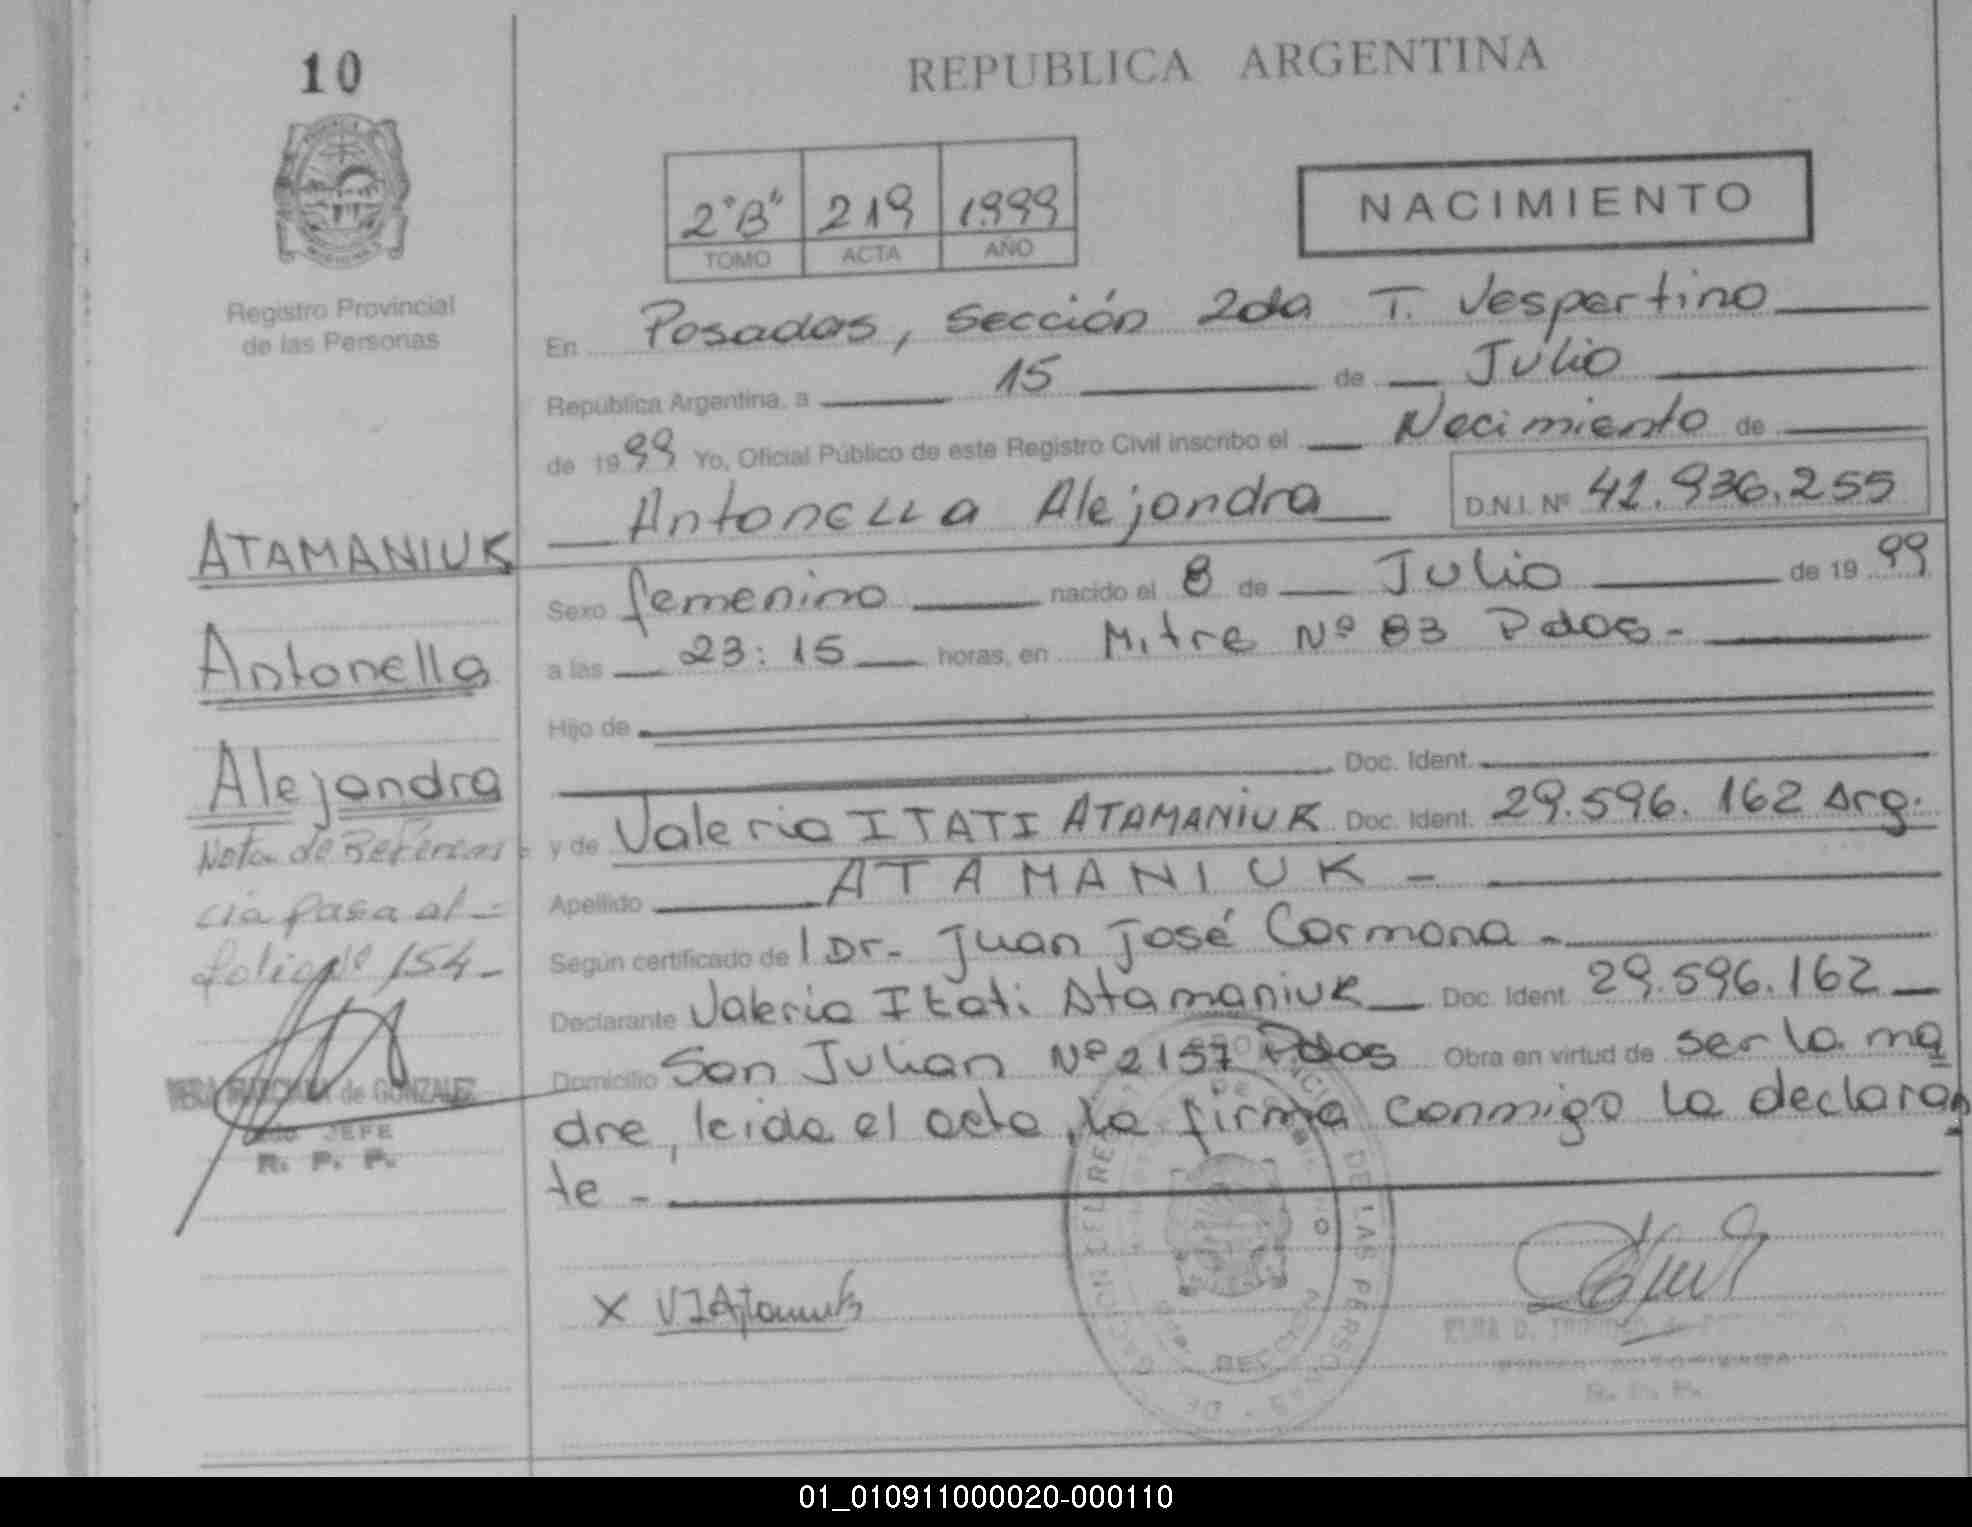 10
REPUBLICA ARGENTINA
2°"B" 219 1999
TOMO ACTA AÑO
NACIMIENTO
Registro Provincial
de las Personas
En Posadas, Sección 2da T. Vespertino
República Argentina, a 15 de Julio
de 1999 Yo, Oficial Público de este Registro Civil inscribo el Nacimiento de
Antonella Alejandra D.N.I. Nº 41.936.255
ATAMANIUK
Antonella
Alejandra
Sexo femenino nacido el 8 de Julio de 1999
a las 23:15 horas, en Mitre Nº 83 Pdas-
Hijo de
Doc. Ident.
y de Valeria ITATI ATAMANIUK Doc. Ident. 29.596.162 Arg.
Apellido ATAMANIUK -
Según certificado de Dr- Juan José Carmona -
Declarante Valeria Itati Atamaniuk Doc. Ident. 29.596.162
Domicilio San Julian Nº 2157 Pdas Obra en virtud de ser la ma
dre, leida el acta, la firma conmigo la declaran
te -
Nota de Referen
cia Pasa al -
folio Nº 154-
de GONZALEZ
JEFE
R. P. P.
X VIAtamuk
DE LAS PERSONAS
R. P. P.
01_010911000020-000110